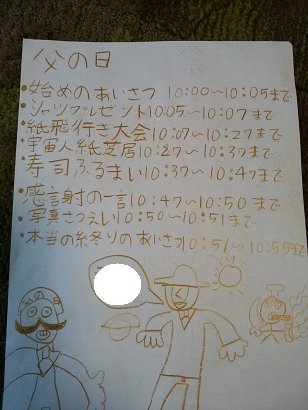 父の日
・始めのあいさつ 10:00〜10:05まで
・シャツプレゼント10:05〜10:07まで
・紙飛行き大会10:07〜10:27まで
・宇宙人紙芝居10:27〜10:37まで
・寿司ふるまい10:37〜10:47まで
・感言射の一言10:47〜10:50まで
・写真さつえい10:50〜10:51まで
・本当の終りのあいさつ10:51〜10:55まで